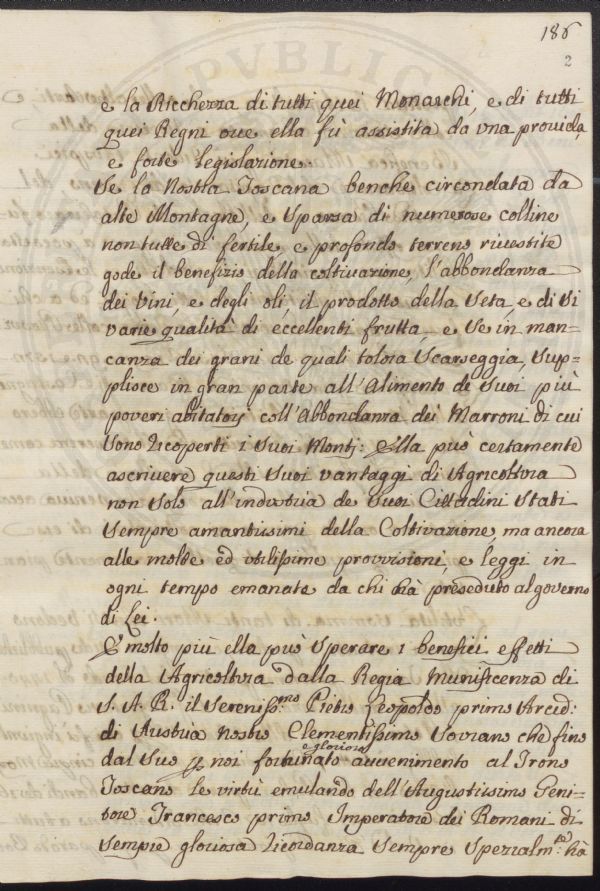 186
2
e la Ricchezza di tutti quei Monarchi, e di tutti
quei Regni ove ella fù assistita da una provida,
e forte Legislazione.
Se la Nostra Toscana benche circondata da
alte Montagne, e Sparsa di numerose colline
non tutte di fertile e profondo terreno rivestite
gode il benefizio della coltivazione, l'abbondanza
dei Vini, e degli oli, il prodotto della Seta, e di Si
varie qualità di eccellenti frutta, e Se in man=
canza dei grani de quali talora Scarseggia, Sup=
plisce in gran parte all'Alimento de Suoi più
poveri abitatori coll'Abbondanza dei Marroni di cui
Sono ricoperti i Suoi Monti: Ella può certamente
ascrivere questi Suoi vantaggi di Agricoltura
non Solo all'industria de Suoi Cittadini Stati
Sempre amantissimi della Coltivazione, ma ancora
alle molte ed utilissime provvisioni, e leggi in
ogni tempo emanate da chi hà preseduto al governo
di Lei.
E molto più ella può Sperare i benefici effetti
della Agricoltura dalla Regia Munificenza di
S. A. R. il Sereniss.mo Pietro Leopoldo primo Arcid:
di Austria Nostro Clementissimo Sovrano che fino
dal Suo p noi fortunato e glorioso avvenimento al Trono
Toscano le virtù emulando dell'Augustissimo Geni=
tore Francesco primo Imperatore dei Romani di
Sempre gloriosa ricordanza Sempre Spezialm.te hà